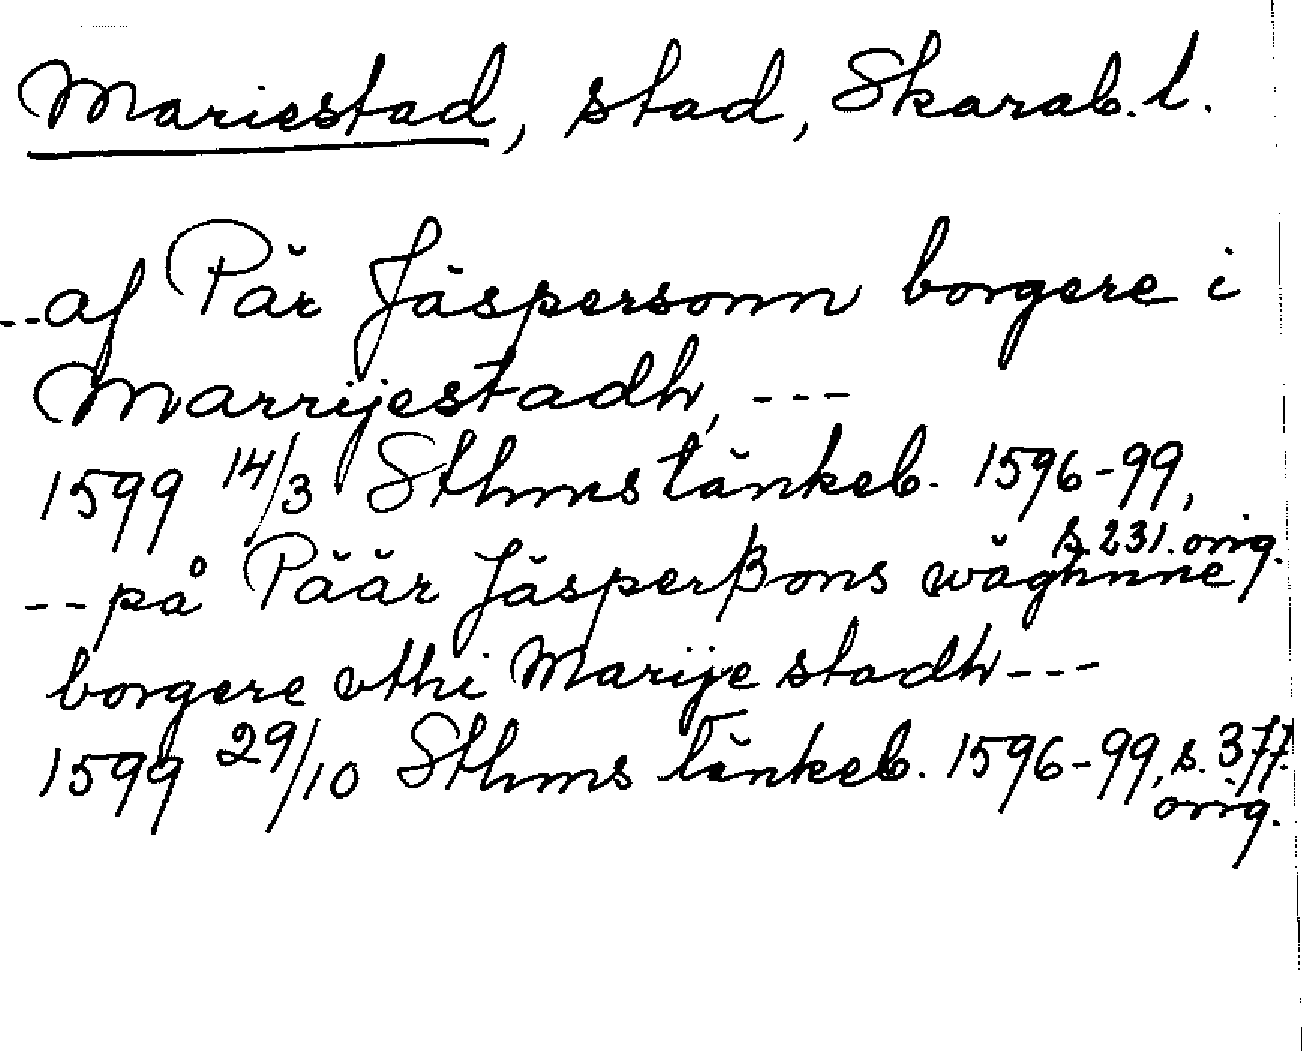 Mariestad, stad, Skarab. l.
--af Pär Jäspersonn borgere i
Marrijestadh, ---
1599 14/3 Sthms tänkeb. 1596-99,
s. 231. orig.
--på Päär Jäsperßons wäghnne,
borgere vthi Marije stadh---
1599 29/10 Sthms tänkeb. 1596-99, s. 377.
orig.